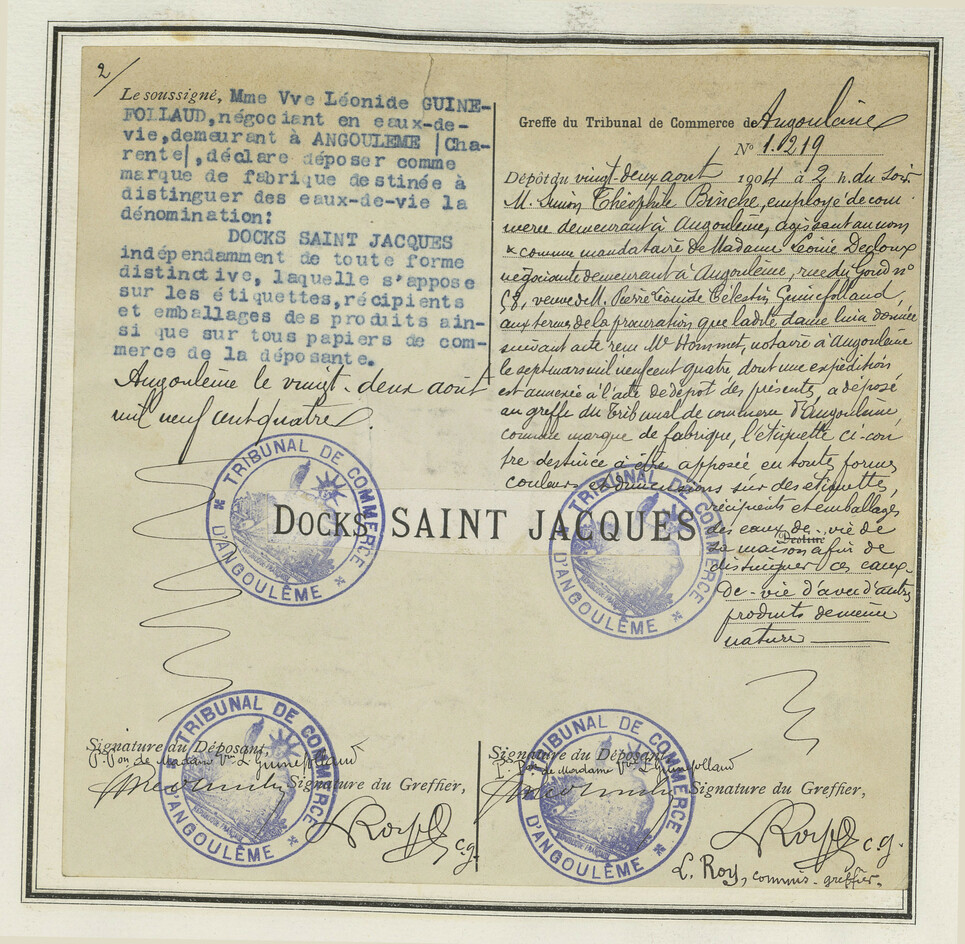 2/
Le soussigné, Mme Vve Léonide GUINE-
FOLLAUD,négociant en eaux-de-
vie,demeurant à ANGOULEME |Cha-
rente|,déclare déposer comme
marque de fabrique destinée à
distinguer des eaux-de-vie la
dénomination:
DOCKS SAINT JACQUES
indépendamment de toute forme
distinctive, laquelle s'appose
sur les étiquettes,récipients
et emballages des produits ain-
si que sur tous papiers de com-
merce de la déposante.
Angoulème le vingt-deux août
mil neuf cent quatre
Greffe du Tribunal de Commerce de Angoulème
N° 1.219
Dépôt du vingt-deux août 1904 à 2 h. du soir
M. Simon Théophile Binche, employé de com-
merce demeurant à Angoulème, agissant au nom
& comme mandataire de Madame Léonie Decloux
négociante demeurant à Angoulème, rue du Gond n°
58, veuve de M. Pierre Léonide Célestin Guinefollaud,
aux termes de la procuration que ladite dame lui a donnée
suivant acte reçu Me Hommet, notaire à Angoulème
le sept mars mil neuf cent quatre dont une expédition
est annexée à l'acte de dépôt des présentes, a déposé
au greffe du Tribunal de commerce d'Angoulème,
comme marque de fabrique, l'étiquette ci-con-
tre destinée à être apposée en toutes formes
couleurs et dimensions sur des étiquettes,
récipients et emballages
des eaux-de-vie de
sa maison afin de
distinguer ces eaux-
de-vie d'avec d'autres
produits de même
nature
DOCKS SAINT JACQUES
TRIBUNAL DE COMMERCE
D'ANGOULÊME
TRIBUNAL DE COMMERCE
D'ANGOULÊME
Signature du Déposant,
P. Pon de Madame Vve L Guinefollaud
Signature du Greffier,
c.g.
TRIBUNAL DE COMMERCE
D'ANGOULÊME
Signature du Déposant,
P. Pon de Madame Vve L Guinefollaud
Signature du Greffier,
c.g.
L. Roy, commis-greffier.
TRIBUNAL DE COMMERCE
D'ANGOULÊME